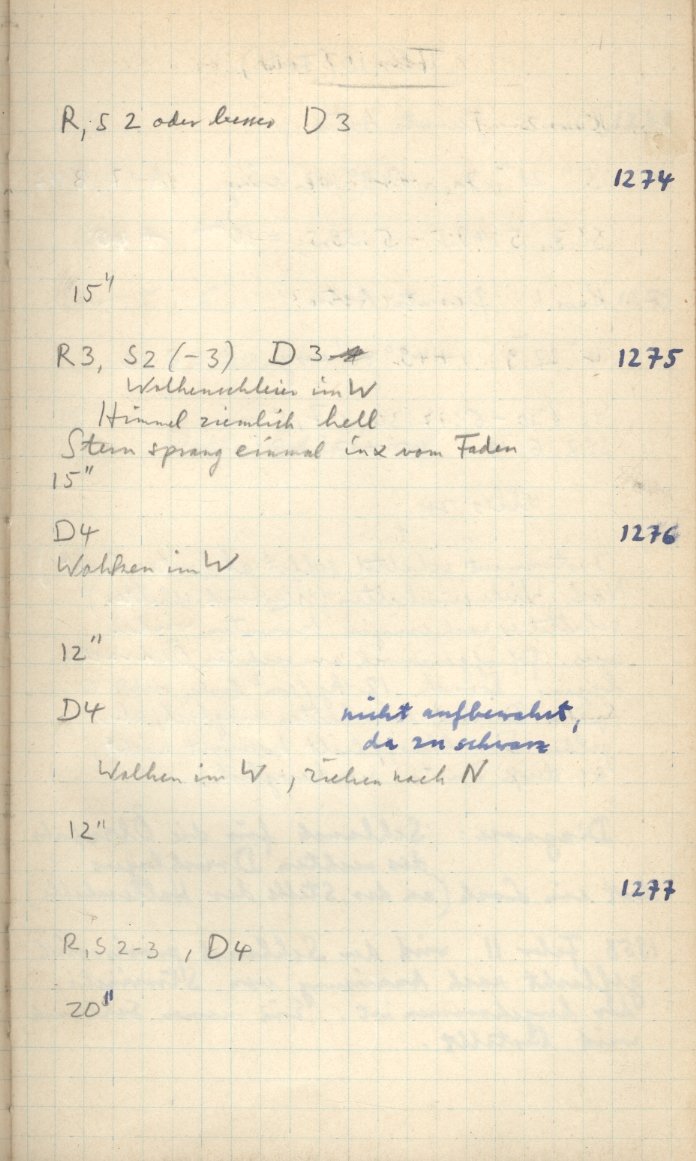 R, S 2 oder besser D 3
1274
15"
R3, S2 (-3) D 3
1275
Wolkenschleier im W
Himmel ziemlich hell
Stern sprang einmal in α vom Faden
15"
D4
1276
Wolken im W
12"
D4
nicht aufbewahrt,
da zu schwarz
Wolken im W, ziehen nach N
12"
1277
R, S 2-3, D4
20"